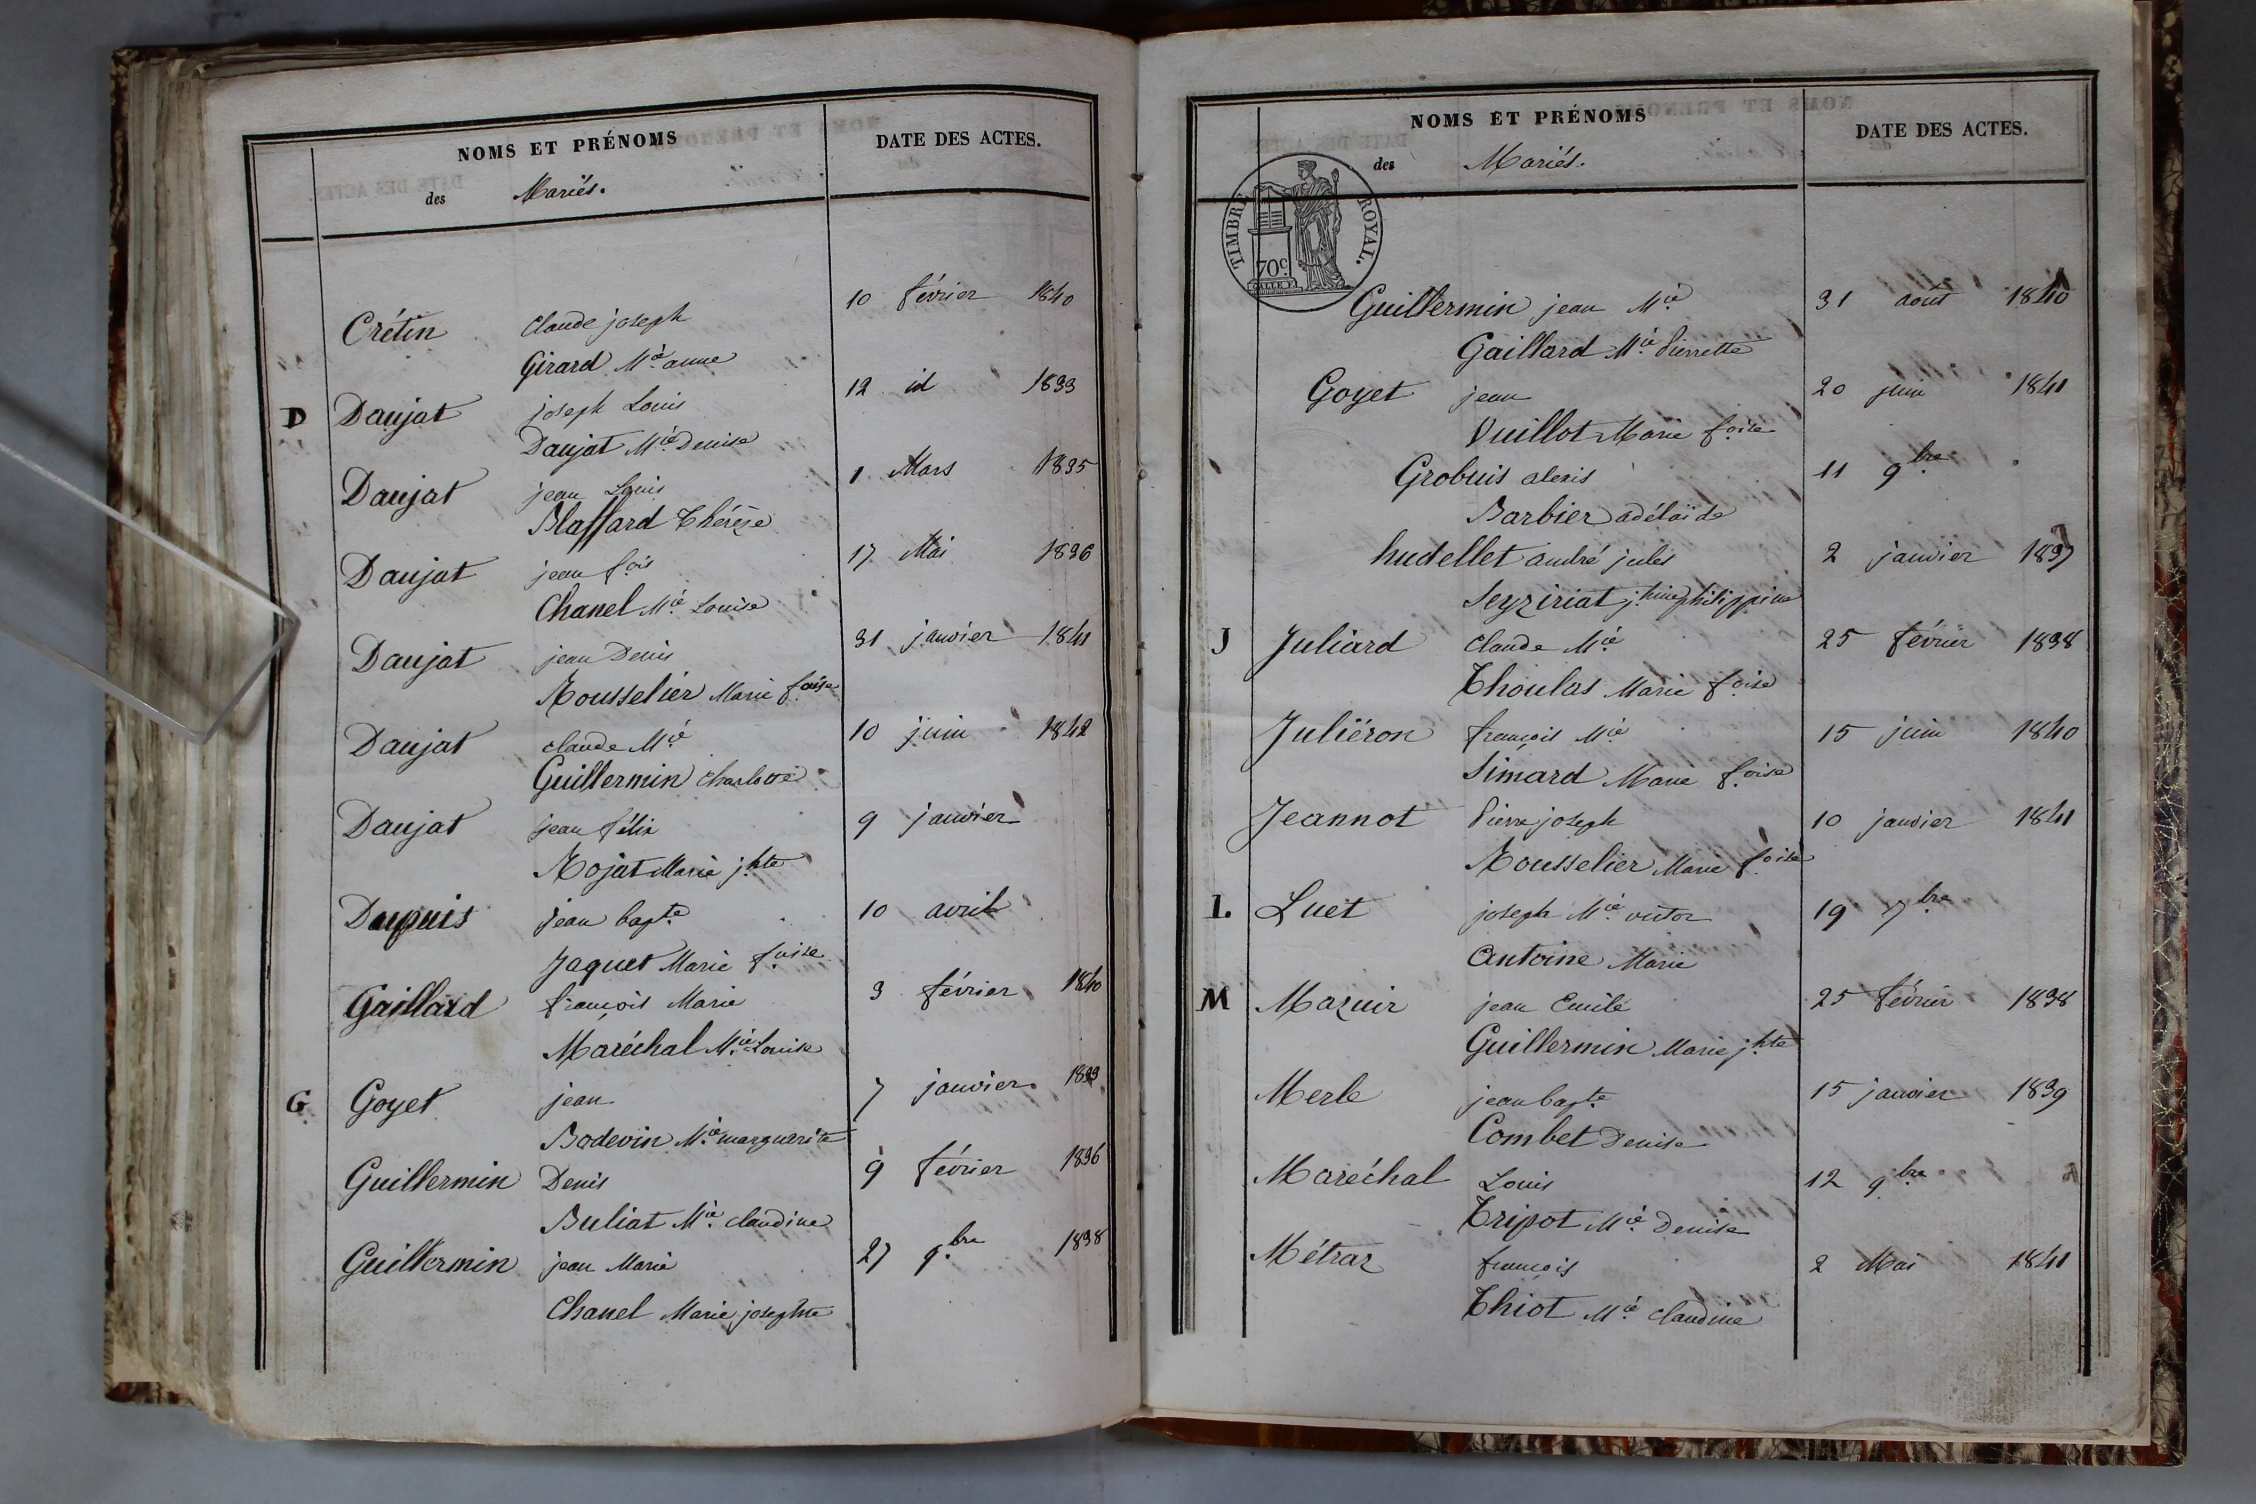 NOMS ET PRÉNOMS
DATE DES ACTES.
des Mariés.
Crétin Claude joseph 10 février 1840
Girard M.ie anne
D Daujat joseph Louis 12 id 1833
Daujat M.ie Denise
Daujat jean Louis 1 Mars 1835
Blaffard Thérèze
Daujat jean f.ois 17 Mai 1836
Chanel M.ie Louise
Daujat jean Denis 31 janvier 1841
Rousselier Marie f.oise
Daujat claude M.ie 10 juin 1842
Guillermin Charlotte
Daujat jean félix 9 janvier
Rojat Marie j.hte
Dupuis jean bap.te 10 avril
Jaquet Marie f.oise
Gaillard françois Marie 3 février 1840
Maréchal M.ie Louise
G Goyet jean 7 janvier 1833
Bodevin M.ie marguerite
Guillermin Denis 9 février 1836
Buliat M.ie claudine
Guillermin jean Marie 27 9.bre 1838
Chanel Marie josephte
NOMS ET PRÉNOMS
DATE DES ACTES.
des Mariés.
TIMBRE ROYAL.
70c.
Guillermin jean M.ie 31 août 1840
Gaillard M.ie Pierrette
Goyet jean 20 juin 1841
Vuillot Marie f.oise
Grobuis alexis 11 9.bre
Barbier adélaïde
hudellet andré jules 2 janvier 1837
Seyziriat j.hine philippine
J Juliard Claude M.ie 25 février 1838
Thoulas Marie f.oise
Juliéron françois M.ie 15 juin 1840
Simard Marie f.oise
Jeannot Pierre joseph 10 janvier 1841
Rousselier Marie f.oise
L Luet joseph M.ie victor 19 7.bre
Antoine Marie
M Mazuir jean Emile 25 février 1838
Guillermin Marie j.hte
Merle jean bap.te 15 janvier 1839
Combet Denise
Maréchal Louis 12 9.bre
Tripot M.ie Denise
Métraz françois 2 Mai 1841
Thiot M.ie claudine